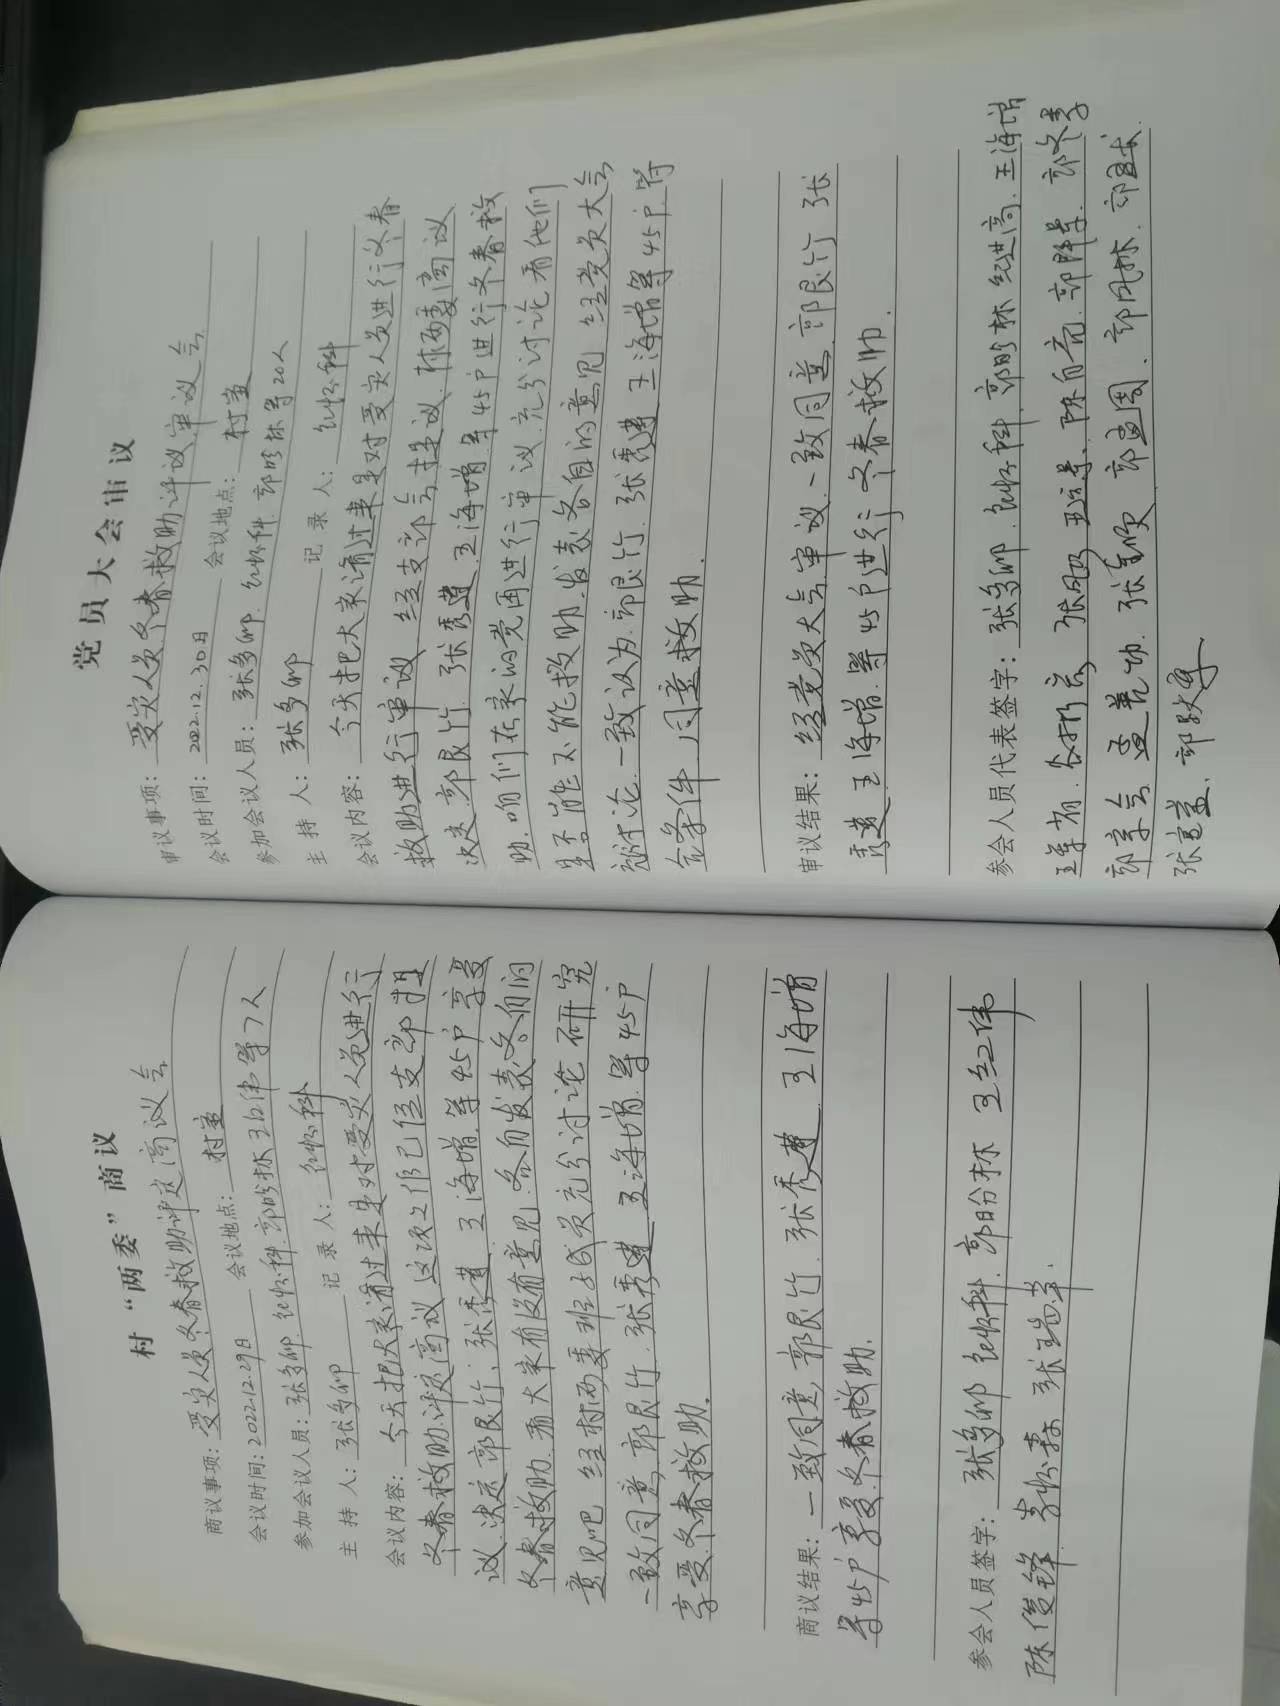 村“两委”商议
商议事项：受灾人员冬春救助评定商议会
会议时间：2022.12.29日 会议地点：村室
参加会议人员：张多卿 纪怀科 郭盼林 王红伟等7人
主持人：张多卿 记录人：纪怀科
会议内容：今天把大家通过来是对受灾人员进行
冬春救助评定商议 这项工作已经支部提
议 决定郭良竹、张秀莲 王海增等45户享受
冬春救助 看大家有没有意见 各自发表各自的
意见吧 经村两委班子成员充分讨论研究
一致同意 郭良竹 张秀莲 王海增等45户
享受冬春救助.
商议结果：一致同意 郭良竹 张秀莲 王海增
等45户享受冬春救助.
参会人员签字：张多卿 纪怀科 郭盼林 王红伟
陈俊锋 李怀森 张瑞革.
党员大会审议
审议事项：受灾人员冬春救助评议审议会
会议时间：2022.12.30日 会议地点：村室
参加会议人员：张多卿 纪怀科 郭盼林等20人
主持人：张多卿 记录人：纪怀科
会议内容：今天把大家通过来是对受灾人员进行冬春
救助进行审议 经支部会提议 村两委商议
决定 郭良竹 张秀莲 王海增等45户进行冬春救
助 咱们在家的党员再进行审议 充分讨论看他们
是否能不能救助 发表各自的意见 经党员大会
讨论 一致认为 郭良竹 张秀莲 王海增等45户符
合条件 同意救助.
审议结果：经党员大会审议 一致同意 郭良竹 张
秀莲 王海增等45户进行冬春救助.
参会人员代表签字：张多卿 纪怀科 郭盼林 纪进高 王海增
陈自亮 郭群 郭
郭 张 郭 周 郭风林 郭
张 郭